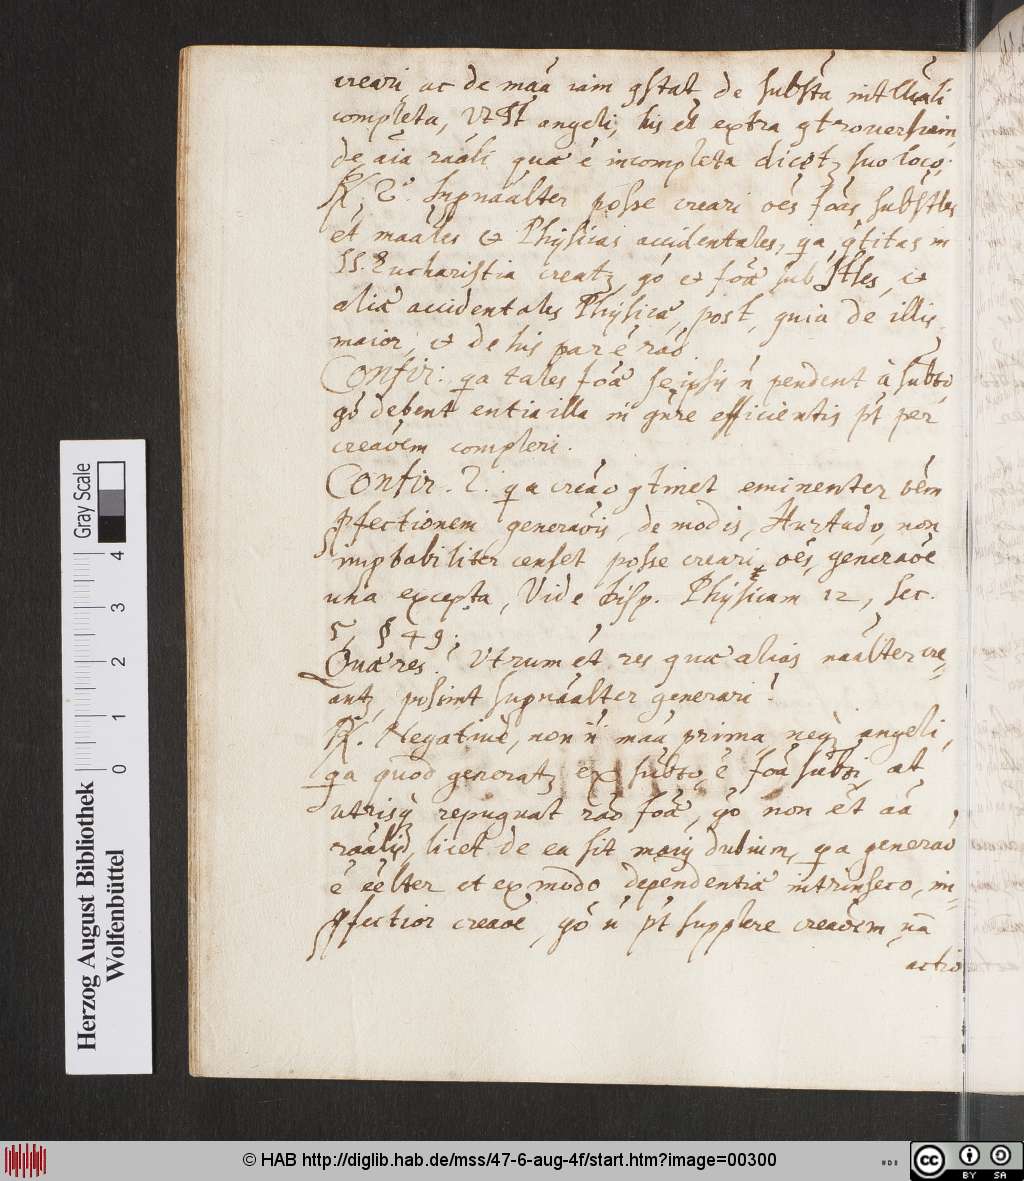 creari, ac de maã iam gstat de substã intlluãli
completa, Vt st angeli, his et extra gtrouersiam,
de aĩa raãli quæ ẽ incompleta dicetz suo loco.
R. 2º. Supnaãlter posse creari oẽs foãs substles
et maãles & Physicas accidentales, qa qtitas in
SS. Eucharistia creatz, go & foã substles, &
aliæ accidentales Physicæ, post, quia de illis
maior, & de his par ẽ rao
Confir: qa tales foã se ipsis ñ pendent à subto
go debent entia illa in gñre efficientis pt per
creaoẽm compleri.
Confir. 2. qa creao gtinet eminenter oẽm
pfectionem generaõis, de modis, Hurtado, non
improbabiliter censet posse creari oẽs, generaoẽ
una excepta, Vide disp. Physicam 12, sec.
5, § 49.
Quæres. Vtrum et res quæ aliàs naãlter cre-
antz, possint supnaãlter generari?
R. Negatiuè, non ñ maã prima neq angeli,
qa quod generatz ex subto ẽ foã subti, at
utrisq repugnat rao foã, go non ẽt aã
raãlis, licet de ea sit maius dubium, qa generao
ẽ eẽlter et ex modo dependentiæ intrinseco, im-
pfectior creaoẽ, go ñ pt supplere creaoẽm, nã
actio
Gray Scale
4
3
2
1
0
Herzog August Bibliothek
Wolfenbüttel
© HAB http://diglib.hab.de/mss/47-6-aug-4f/start.htm?image=00300
cc BY SA